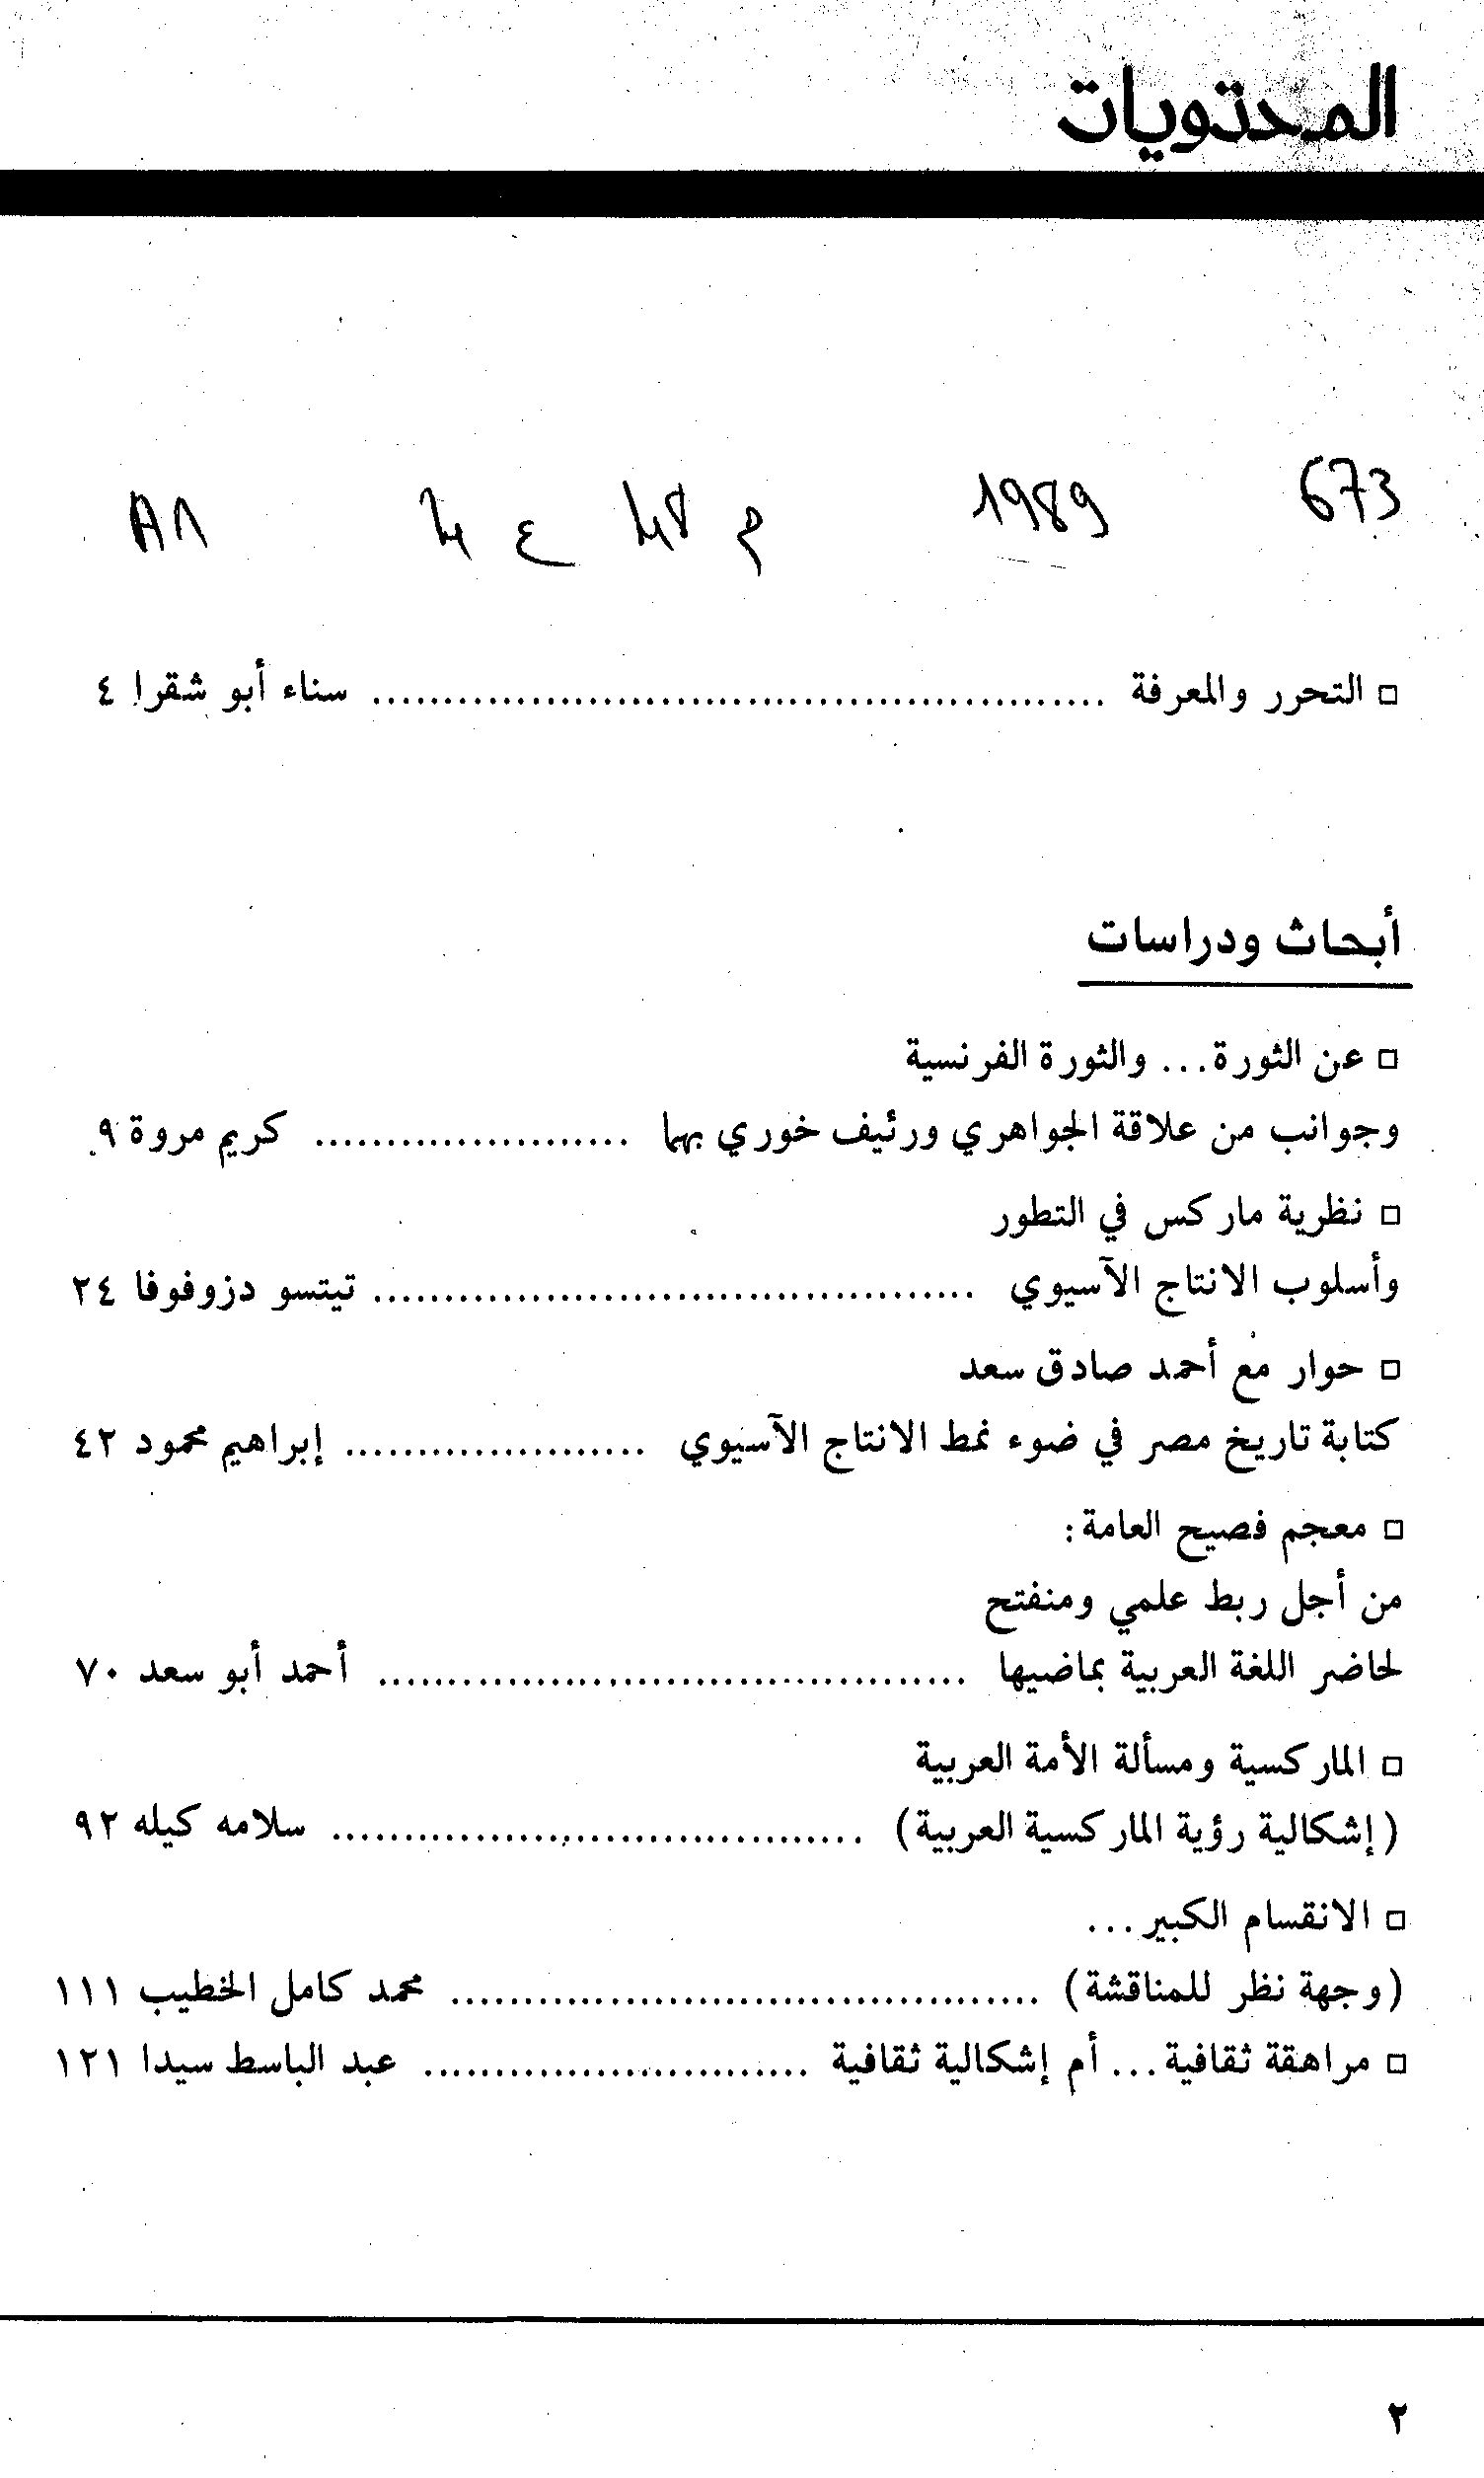 المحتويات
673 1989 م 48 ع 4 A1
□ التحرر والمعرفة ................................................... سناء أبو شقرا ٤
أبحاث ودراسات
□ عن الثورة... والثورة الفرنسية
وجوانب من علاقة الجواهري ورئيف خوري بهما ...................... كريم مروة ٩
□ نظرية ماركس في التطور
وأسلوب الانتاج الآسيوي .......................................... تيتسو دزوفوفا ٢٤
□ حوار مع أحمد صادق سعد
كتابة تاريخ مصر في ضوء نمط الانتاج الآسيوي ..................... إبراهيم محمود ٤٢
□ معجم فصيح العامة:
من أجل ربط علمي ومنفتح
لحاضر اللغة العربية بماضيها ......................................... أحمد أبو سعد ٧٠
□ الماركسية ومسألة الأمة العربية
(إشكالية رؤية الماركسية العربية) ..................................... سلامه كيله ٩٢
□ الانقسام الكبير...
(وجهة نظر للمناقشة) ......................................... محمد كامل الخطيب ١١١
□ مراهقة ثقافية... أم إشكالية ثقافية ........................... عبد الباسط سيدا ١٢١
٢